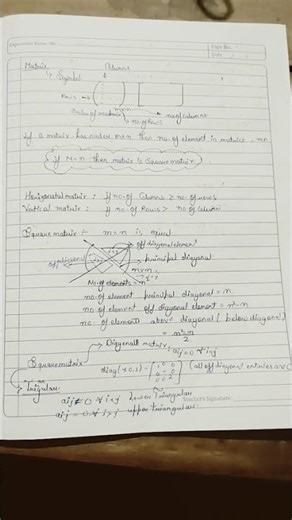 Experiment Name No.
Page No.
Date
Matrix
Columns
Symbol
Rows
m×n
order of matrix
no of columns
no of Rows
if a matrix has order m×n then no. of element in matrix = mn
if M = n then matrix is Square matrix
Horizontal matrix :- if no. of Colums > no. of rows
Vertical matrix :- if no. of Rows > no. of column
Square matrix :- m = n is equal
off diagonal element
off diagonal
principal diagonal
No. of elements = n²
no. of element principal diagonal = n
no. of element off diagonal element = n²-n
no. of elements above diagonal ( below diagonal)
= n²-n
2
Diagonal matrix :
Square matrix
(all off diagonal entries are
Triangular
lower Triangular
aij = 0 ∀ i>j upper triangular
Teacher's Signature